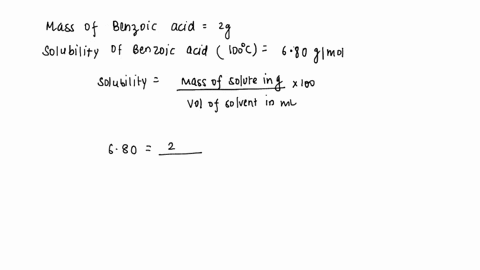 Mass of Benzoic acid = 2g
Solubility of Benzoic acid (100°C) = 6.80 g/mol
Solubility = Mass of solute in g / Vol of solvent in mL × 100
6.80 = 2